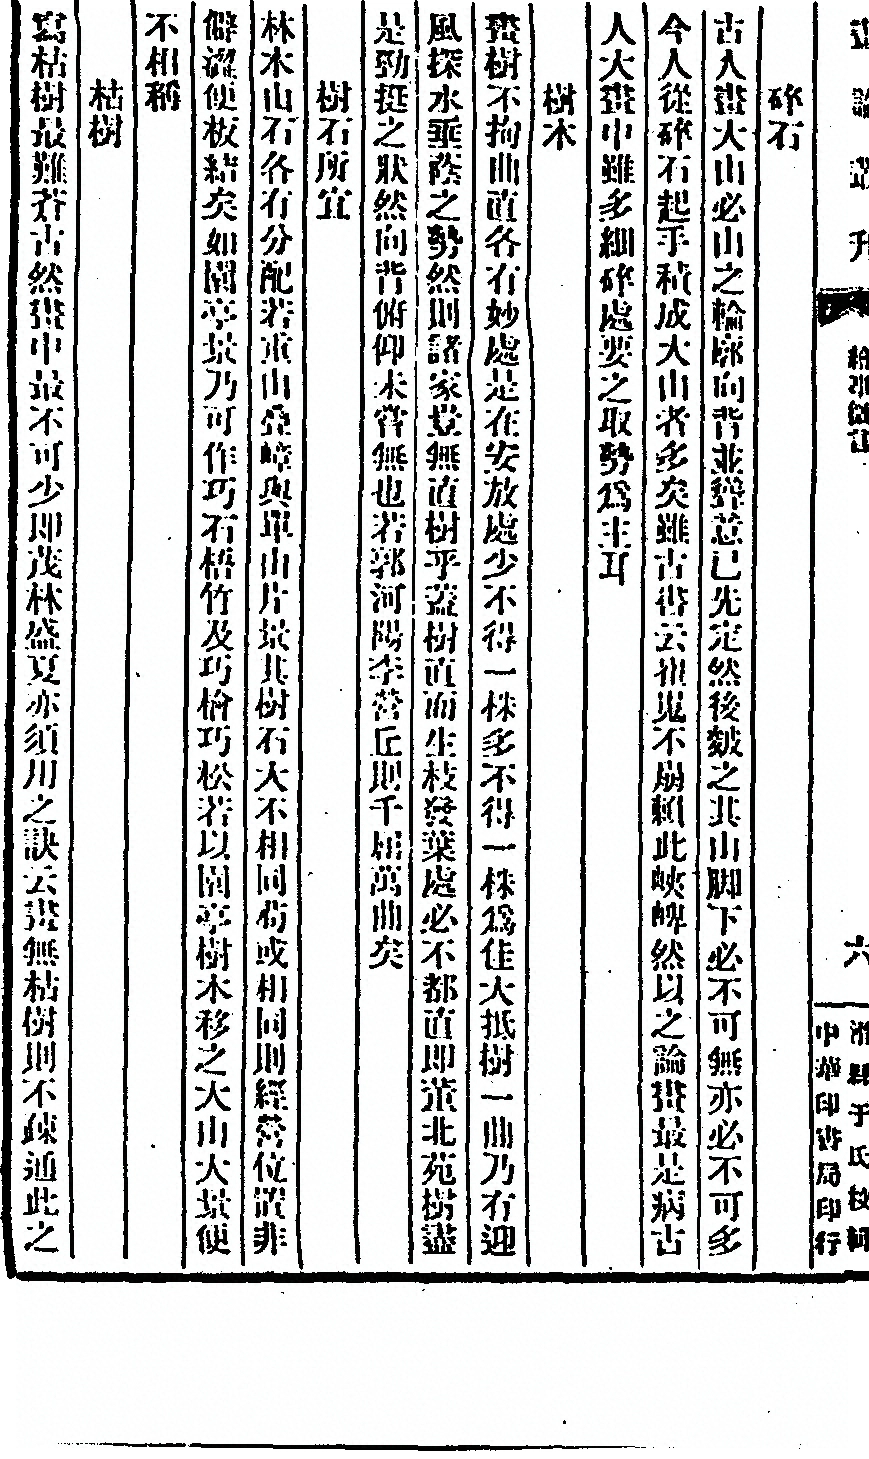 畫論叢刊
繪事微言
六
濰縣于氏校調
中華印書局印行
碎石
古人畫大山必山之輪廓向背並聳意已先定然後皴之其山脚下必不可無亦必不可多
今人從碎石起手積成大山者多矣雖古書云祖嵬不崩賴此峽䃑然以之論畫最是病古
人大畫中雖多細碎處要之取勢爲主耳
樹木
畫樹不拘曲直各有妙處是在安放處少不得一株多不得一株爲佳大抵樹一曲乃有迎
風探水垂蔭之勢然則諸家豈無直樹乎蓋樹直而生枝發葉處必不都直即董北苑樹盡
是勁挺之狀然向背俯仰未嘗無也若郭河陽李營丘則千屈萬曲矣
樹石所宜
林木山石各有分配若重山疊嶂與單山片景其樹石大不相同苟或相同則經營位置非
僻澀便板結矣如園亭景乃可作巧石梧竹及巧檜巧松若以園亭樹木移之大山大景便
不相稱
枯樹
寫枯樹最難蒼古然畫中最不可少即茂林盛夏亦須用之訣云畫無枯樹則不疎通此之